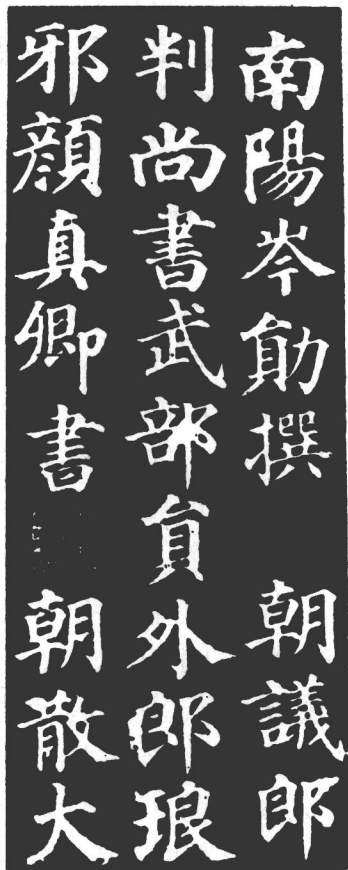 南陽岑勛撰 朝議郎
判尚書武部貟外郎琅
邪顏真卿書 朝散大